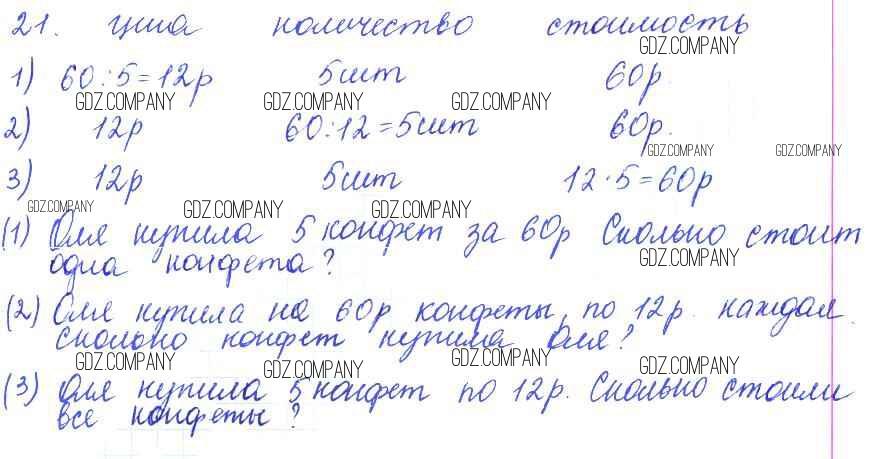 21. цена количество стоимость
GDZ.COMPANY
1) 60:5=12р 5шт 60р.
GDZ.COMPANY GDZ.COMPANY GDZ.COMPANY
2) 12р 60:12=5шт 60р.
GDZ.COMPANY GDZ.COMPANY
3) 12р 5шт 12·5=60р
GDZ.COMPANY GDZ.COMPANY GDZ.COMPANY
(1) Оля купила 5 конфет за 60р Сколько стоит
одна конфета?
GDZ.COMPANY
(2) Оля купила на 60р конфеты, по 12р. каждая.
Сколько конфет купила Оля?
GDZ.COMPANY GDZ.COMPANY GDZ.COMPANY GDZ.COMPANY
(3) Оля купила 5 конфет по 12р. Сколько стоили
все конфеты?